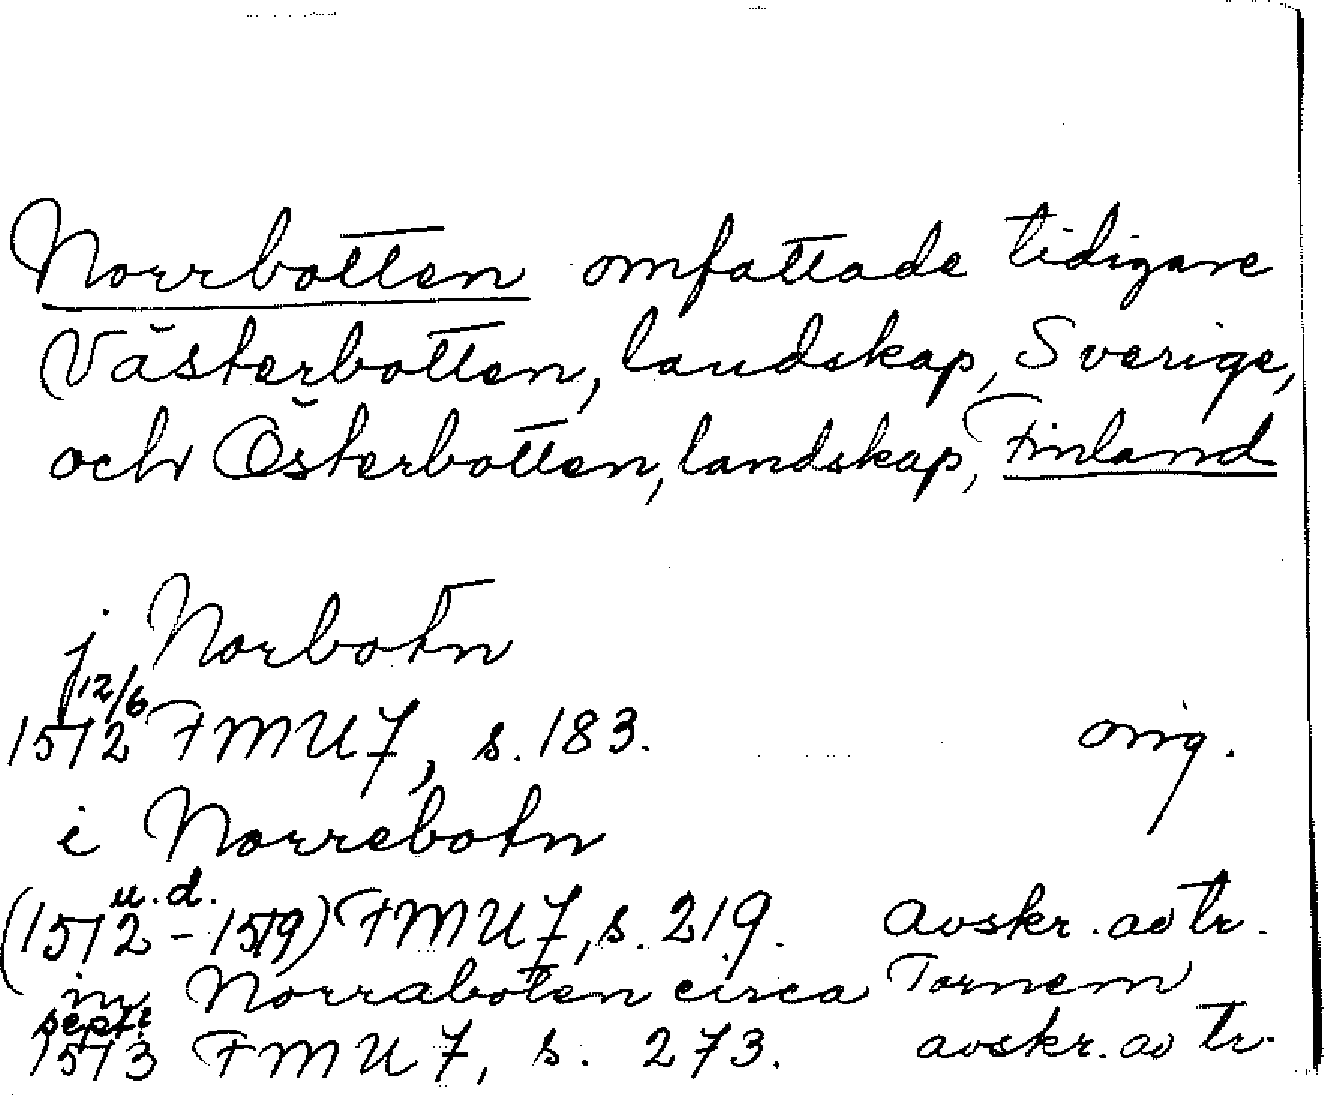 Norrbotten omfattade tidigare
Västerbotten, landskap, Sverige,
och Österbotten, landskap, Finland
j Norbotn
12/6
1512 FMU 7, s. 183. orig.
i Norrebotn
u.d.
(1512-1519) FMU 7, s. 219. avskr. av tr.
in Norraboten circa Tornem
sept.
1513 FMU 7, s. 273. avskr. av tr.